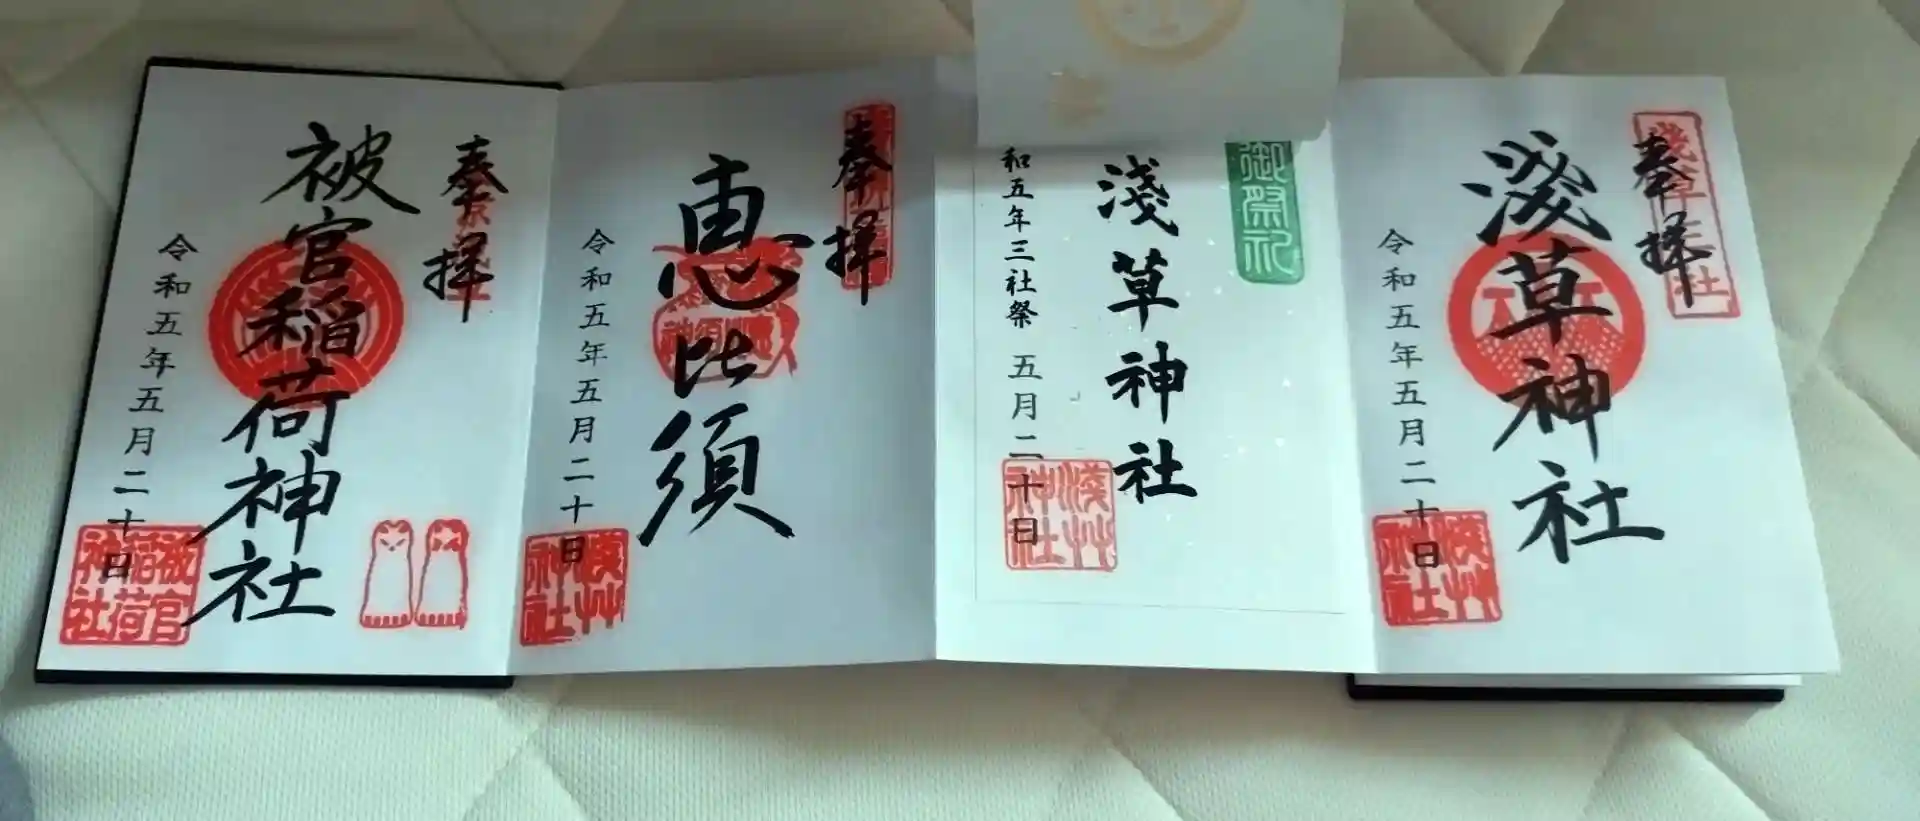 奉拝
淺草神社
令和五年五月二十日
淺草神社
御祭礼
淺草神社
和五年三社祭 五月二十日
淺草神社
奉拝
恵比須
令和五年五月二十日
淺草神社
奉拝
被官稲荷神社
令和五年五月二十日
被官稲荷神社